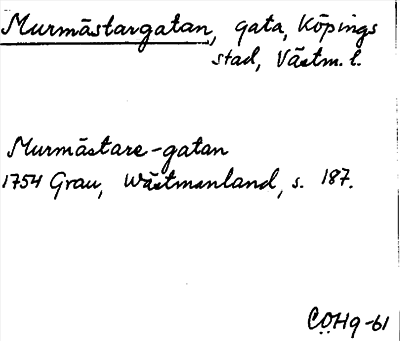 Murmästargatan, gata, Köpings
stad, Västm. l.
Murmästare-gatan
1754 Grau, Wästmanland, s. 187.
COHg-61